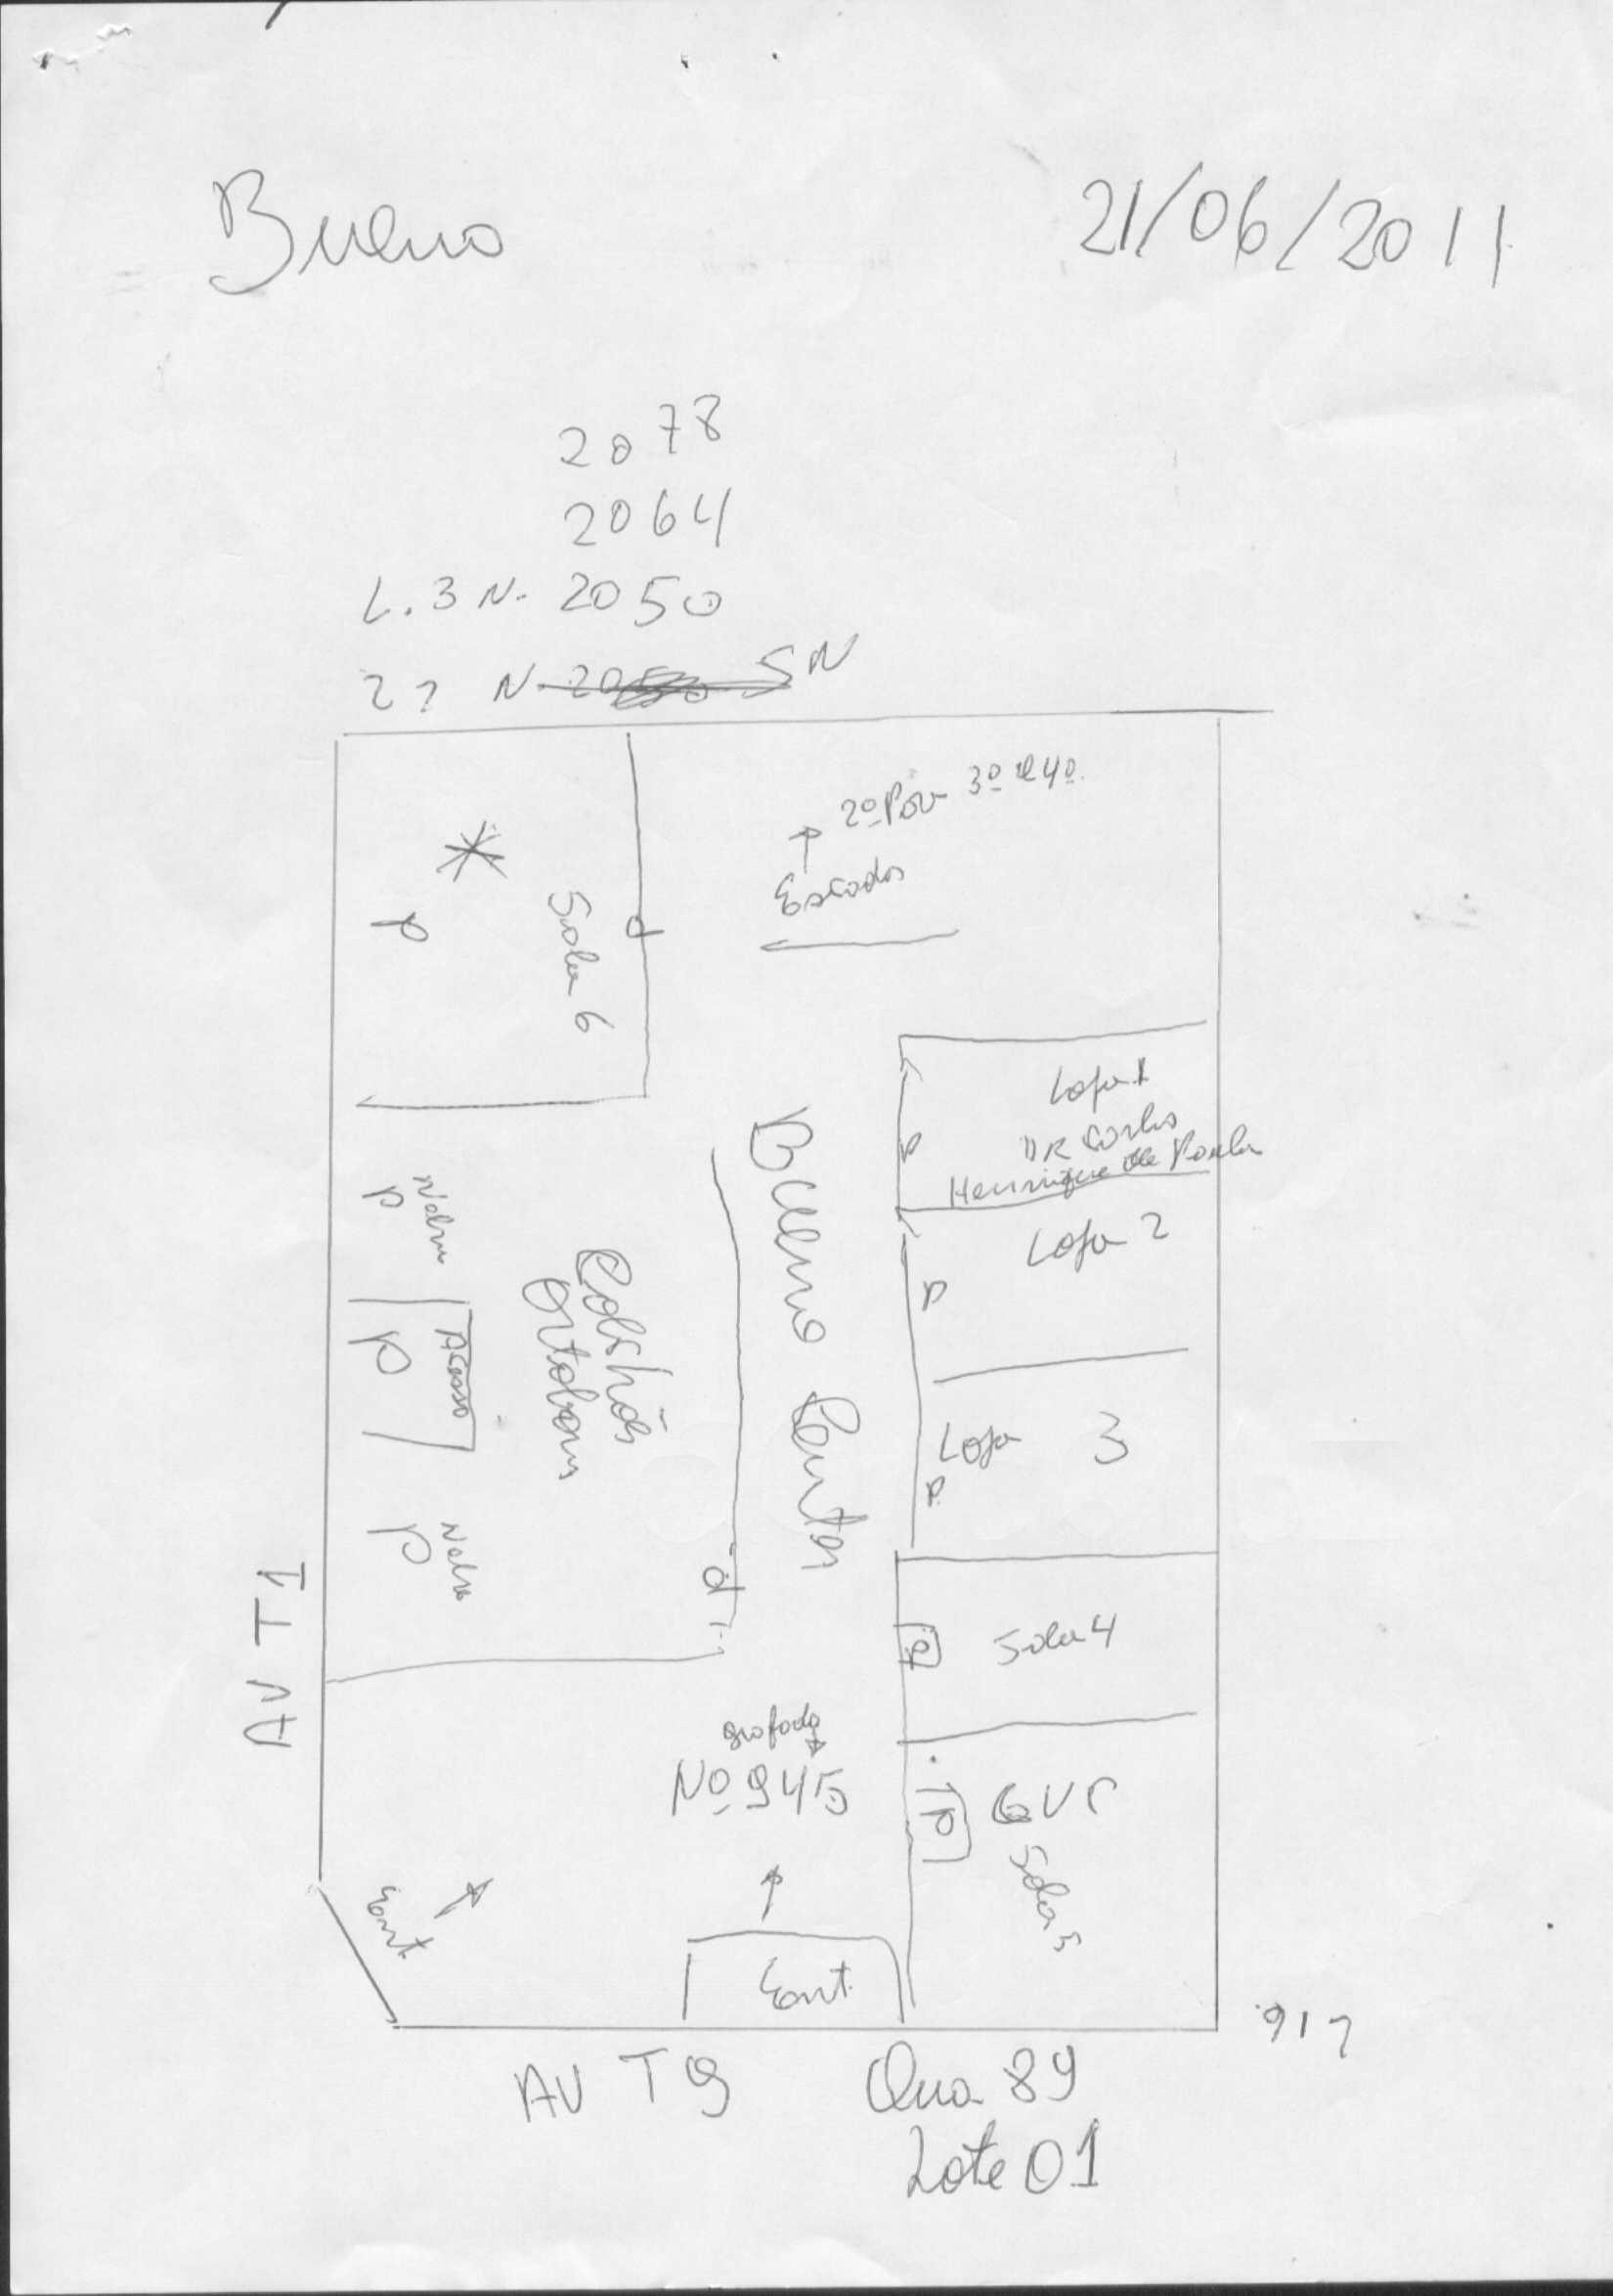 Bueno
21/06/2011
2078
2064
L.3 N. 2050
2? N SN
2º Pav 3º e 4º
Escadas
Sala 6
P
P
Loja 1
DR Carlos
Henrique de Paula
P
Loja 2
P
Loja 3
P
Bueno Center
Colchões
Ortobom
P
Acesso
P
P
P
AV T1
Sala 4
P
grafado
Nº 945
GVT
Sala 5
P
Ent.
Ent.
917
AV T9
Qua 89
Lote 01